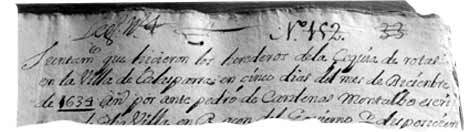 Leg. Nº 4 Nº 152. 33
Juntam que hicieron los herederos de la Cequia de rotas
en la Villa de Calasparra en cinco dias del mes de Diciembre
de 1634 añ por ante pedro de Cardenas Montalbo escri
Villa en Raçon del Gobierno y disposicion